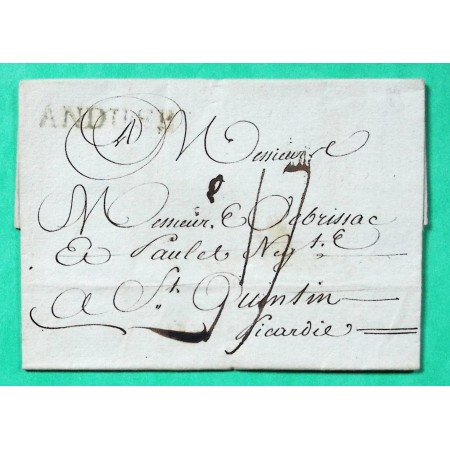 ANDUZE
A Messieurs
Messieurs Debrissac
Et Paulet Neg.t
a St. Quintin
Picardie